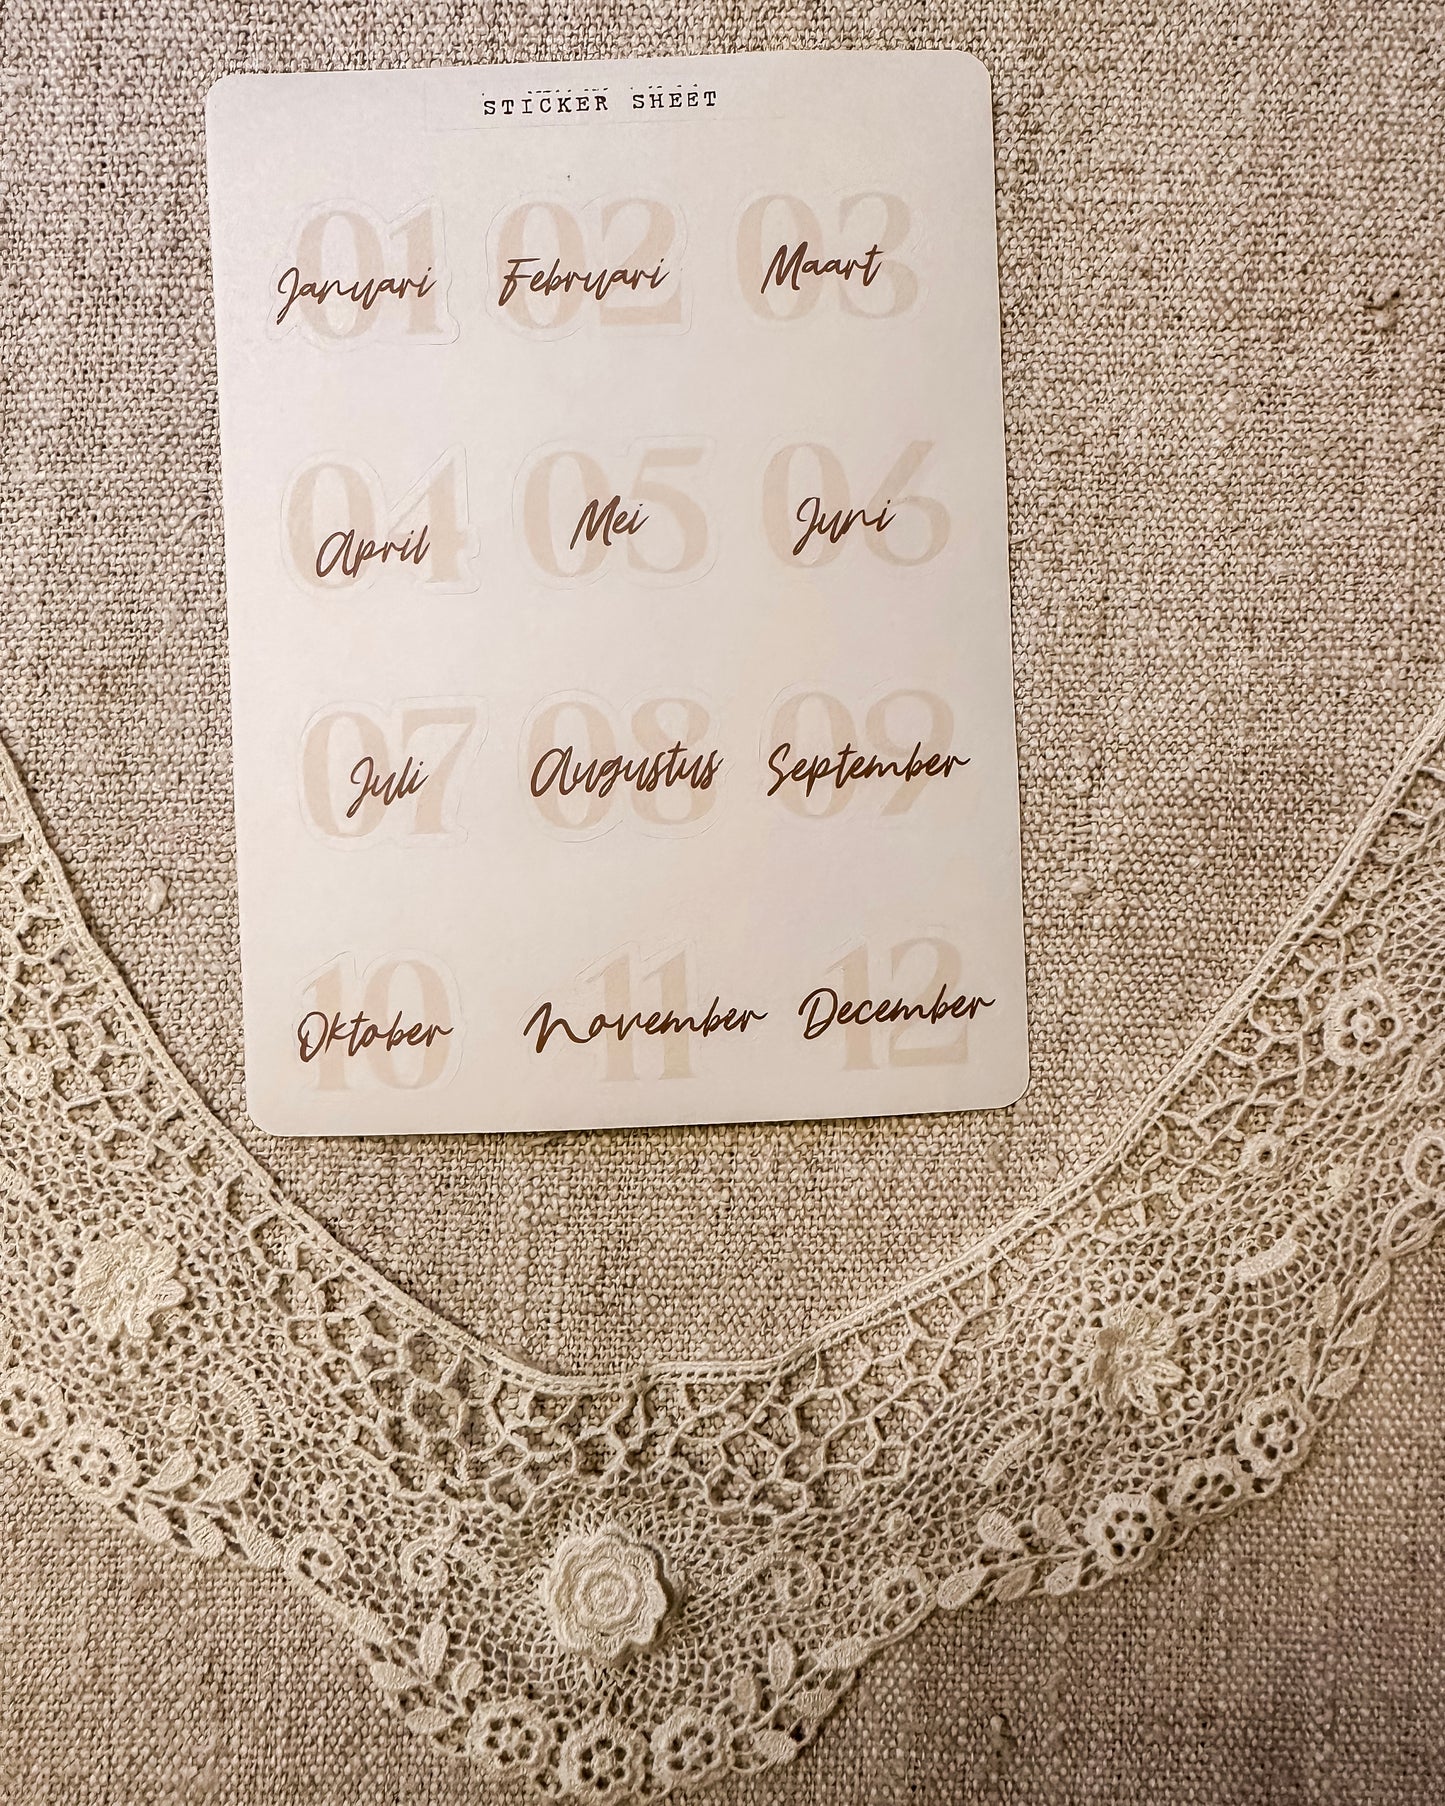 STICKER SHEET
01 02 03
Januari Februari Maart
04 05 06
April Mei Juni
07 08 09
Juli Augustus September
10 11 12
Oktober November December